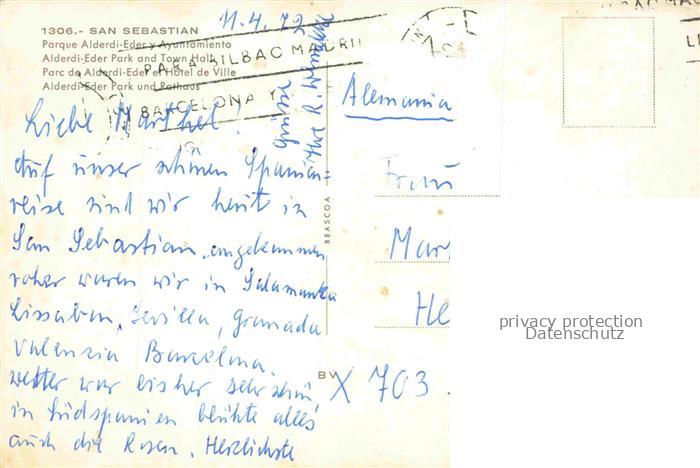 1306.- SAN SEBASTIAN
Parque Alderdi-Eder y Ayuntamiento
Alderdi-Eder Park and Town Hall
Parc de Alderdi-Eder et Hôtel de Ville
Alderdi-Eder Park und Rathaus
11.4.72
PARA BILBAO MADRID
BARCELONA Y
Liebe Marthel!
Auf unser schönen Spanien=
reise sind wir heut in
San Sebastian angekommen
voher waren wir in Salamanka
Lissabon, Sevilla, Granada
Valenzia Barzelona.
Wetter war bisher sehr schön
in Südspanien blühte alles
auch die Rosen. Herzlichste
Grüße
Ihre R.
BEASCOA
Alemania
Frau
Mar
He
BV
X 703
privacy protection
Datenschutz